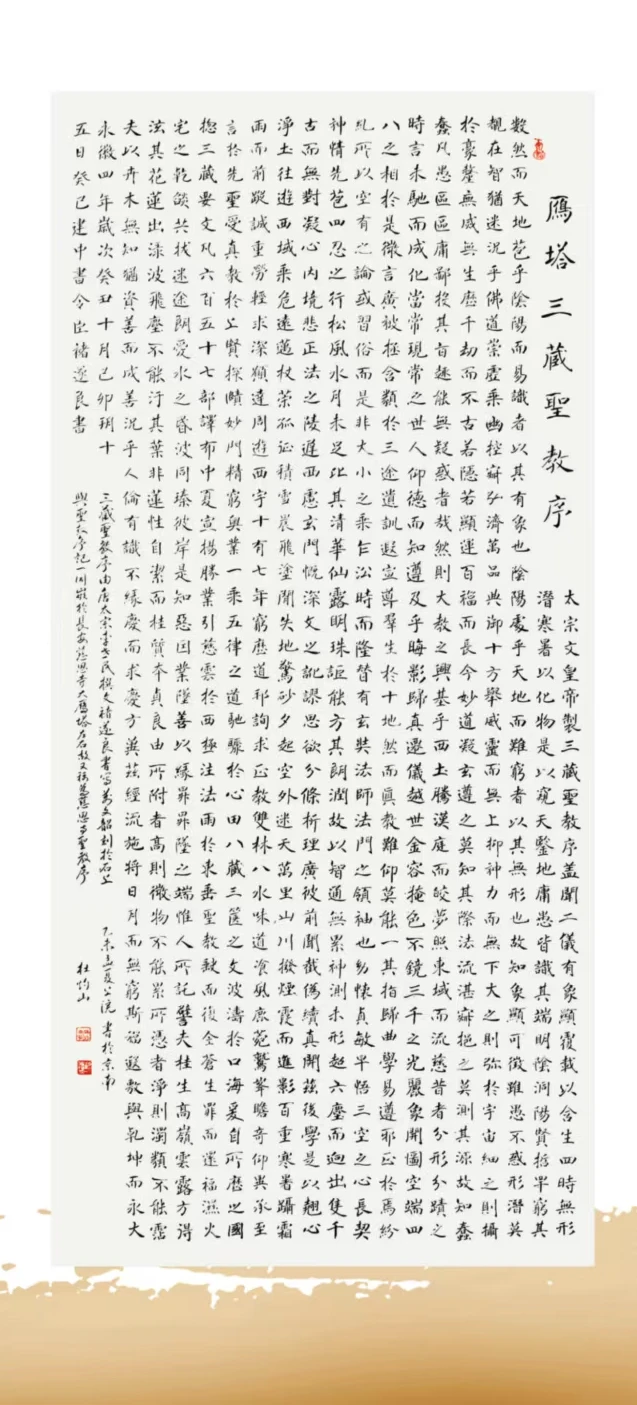 鴈塔三藏聖教序
太宗文皇帝製三藏聖教序蓋聞二儀有象顯覆載以含生四時無形
潛寒暑以化物是以窺天鑒地庸愚皆識其端明陰洞陽賢哲罕窮其
數然而天地苞乎陰陽而易識者以其有象也陰陽處乎天地而難窮者以其無形也故知象顯可徵雖愚不惑形潛莫
覩在智猶迷況乎佛道崇虛乘幽控寂弘濟萬品典御十方舉威靈而無上抑神力而無下大之則彌於宇宙細之則攝
於豪釐無滅無生歷千劫而不古若隱若顯運百福而長今妙道凝玄遵之莫知其際法流湛寂挹之莫測其源故知蠢
蠢凡愚區區庸鄙投其旨趣能無疑惑者哉然則大教之興基乎西土騰漢庭而皎夢照東域而流慈昔者分形分蹟之
時言未馳而成化當常現常之世人仰德而知遵及乎晦影歸真遷儀越世金容掩色不鏡三千之光麗象開圖空端四
八之相於是微言廣被拯含類於三途遺訓遐宣導羣生於十地然而真教難仰莫能一其指歸曲學易遵邪正於焉紛
糺所以空有之論或習俗而是非大小之乘乍沿時而隆替有玄奘法師法門之領袖也幼懷貞敏早悟三空之心長契
神情先苞四忍之行松風水月未足比其清華仙露明珠詎能方其朗潤故以智通無累神測未形超六塵而迥出隻千
古而無對凝心內境悲正法之陵遲西慮玄門慨深文之訛謬思欲分條析理廣彼前聞截偽續真開茲後學是以翹心
淨土往遊西域乘危遠邁杖策孤征積雪晨飛塗間失地驚砂夕起空外迷天萬里山川撥煙霞而進影百重寒暑躡霜
雨而前蹤誠重勞輕求深願達周遊西宇十有七年窮歷道邦詢求正教雙林八水味道飡風鹿菀鷲峯瞻奇仰異承至
言於先聖受真教於上賢探賾妙門精窮奧業一乘五律之道馳驟於心田八藏三篋之文波濤於口海爰自所歷之國
揔三藏要文凡六百五十七部譯布中夏宣揚勝業引慈雲於西極注法雨於東垂聖教缺而復全蒼生罪而還福濕火
宅之乾燄共拔迷途朗愛水之昏波同臻彼岸是知惡因業墜善以緣昇昇墜之端惟人所託譬夫桂生高嶺雲露方得
泫其花蓮出淥波飛塵不能汙其葉非蓮性自潔而桂質本貞良由所附者高則微物不能累所憑者淨則濁類不能霑
夫以卉木無知猶資善而成善況乎人倫有識不緣慶而求慶方冀茲經流施將日月而無窮斯福遐敷與乾坤而永大
永徽四年歲次癸丑十月己卯朔十
五日癸巳建中書令臣褚遂良書
三藏聖教序由唐太宗李世民撰文褚遂良書寫萬文韶刻於石上
與聖教序記一同嵌於長安慈恩寺大雁塔左右故又稱為慈恩寺聖教序
乙未 書於京南
杜 山